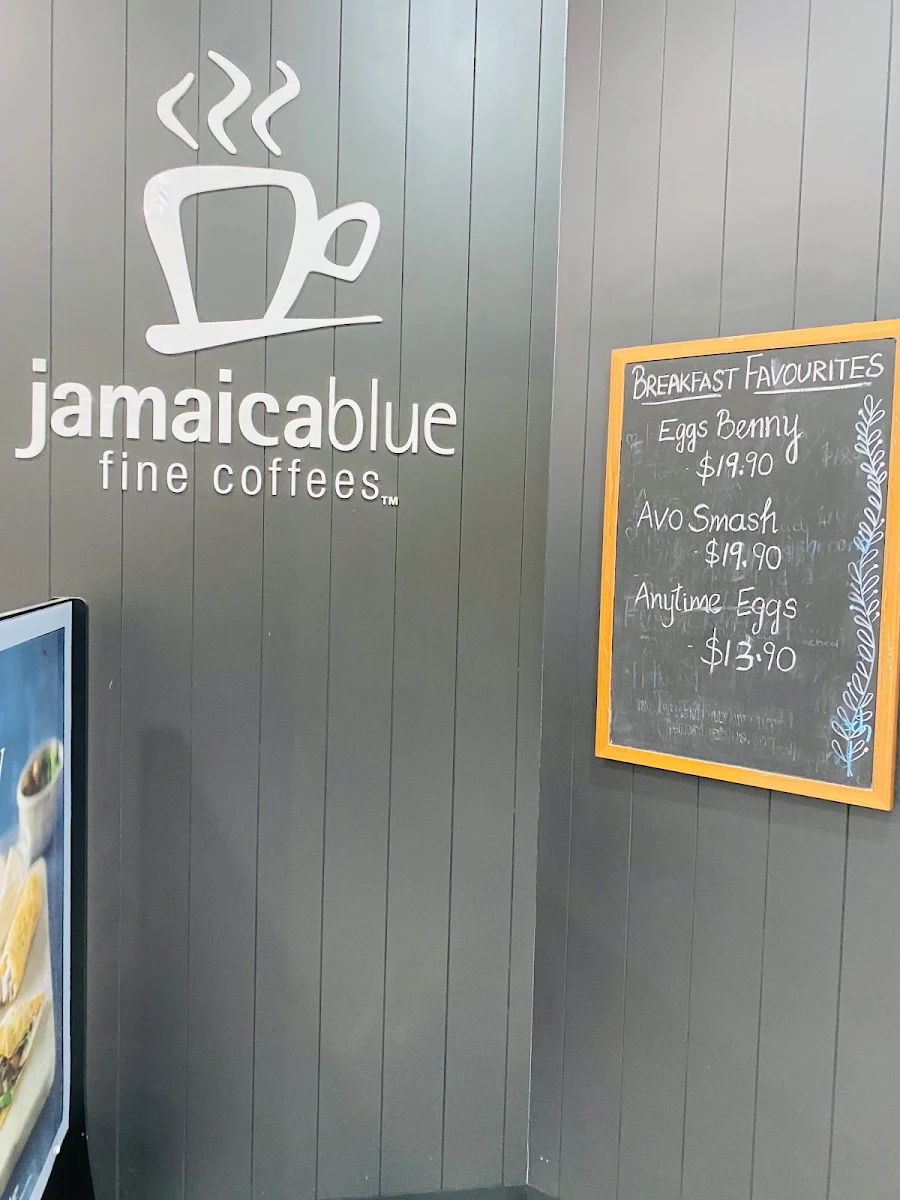 jamaicablue
fine coffees™
BREAKFAST FAVOURITES
Eggs Benny
- $19.90
Avo Smash
- $19.90
Anytime Eggs
- $13.90